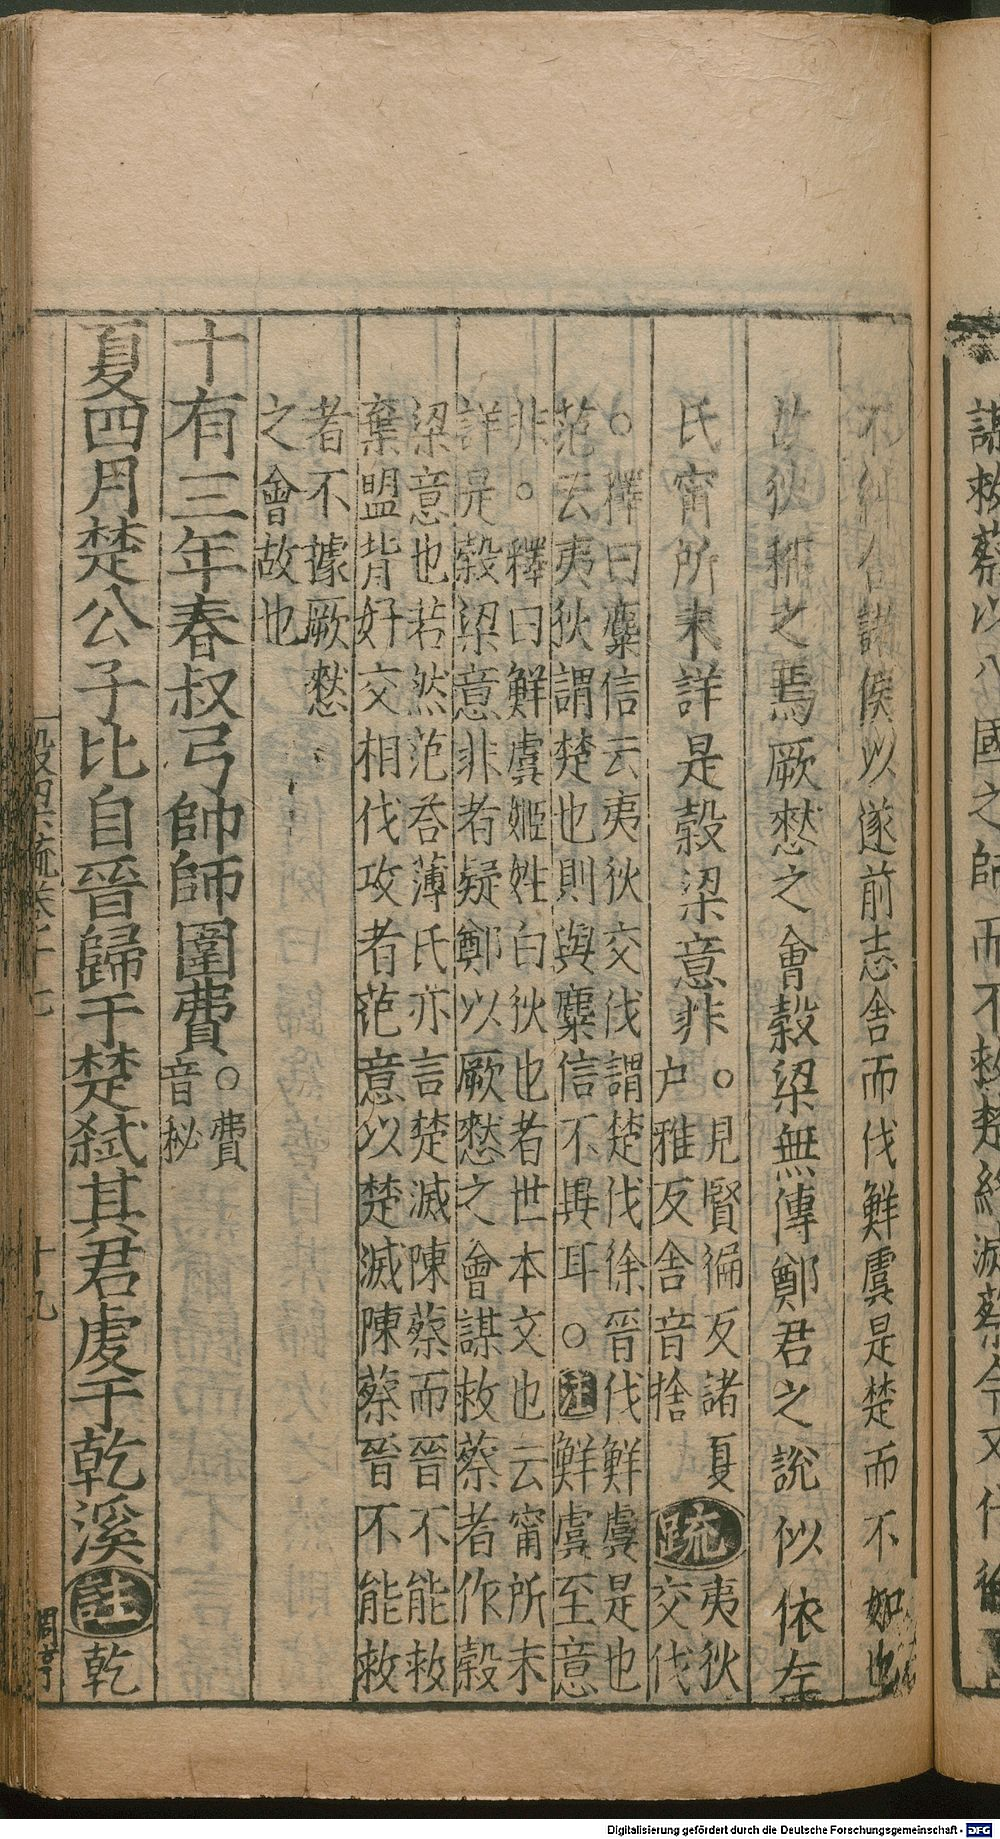 不糾合諸侯以遂前志舍而伐鮮虞是楚而不如也
故狄稱之焉厥憗之會穀梁無傳鄭君之說似依左
氏甯所未詳是穀梁意非。見賢徧反諸夏
戶雅反舍音捨
疏夷狄
交伐
。釋曰麋信云夷狄交伐謂楚伐徐晉伐鮮虞是也
范云夷狄謂楚也則與麋信不異耳。注鮮虞至意
非。釋曰鮮虞姬姓白狄也者世本文也云甯所未
詳是穀梁意非者疑鄭以厥憗之會謀救蔡者作穀
梁意也若然范荅薄氏亦言楚滅陳蔡而晉不能救
棄盟背好交相伐攻者范意以楚滅陳蔡晉不能救
者不據厥憗
之會故也
十有三年春叔弓帥師圍費。費
音秘
夏四月楚公子比自晉歸于楚弒其君虔于乾溪註乾
十九
謀救蔡以八國之師而不救楚終滅蔡今又伐徐
Digitalisierung gefördert durch die Deutsche Forschungsgemeinschaft - DFG